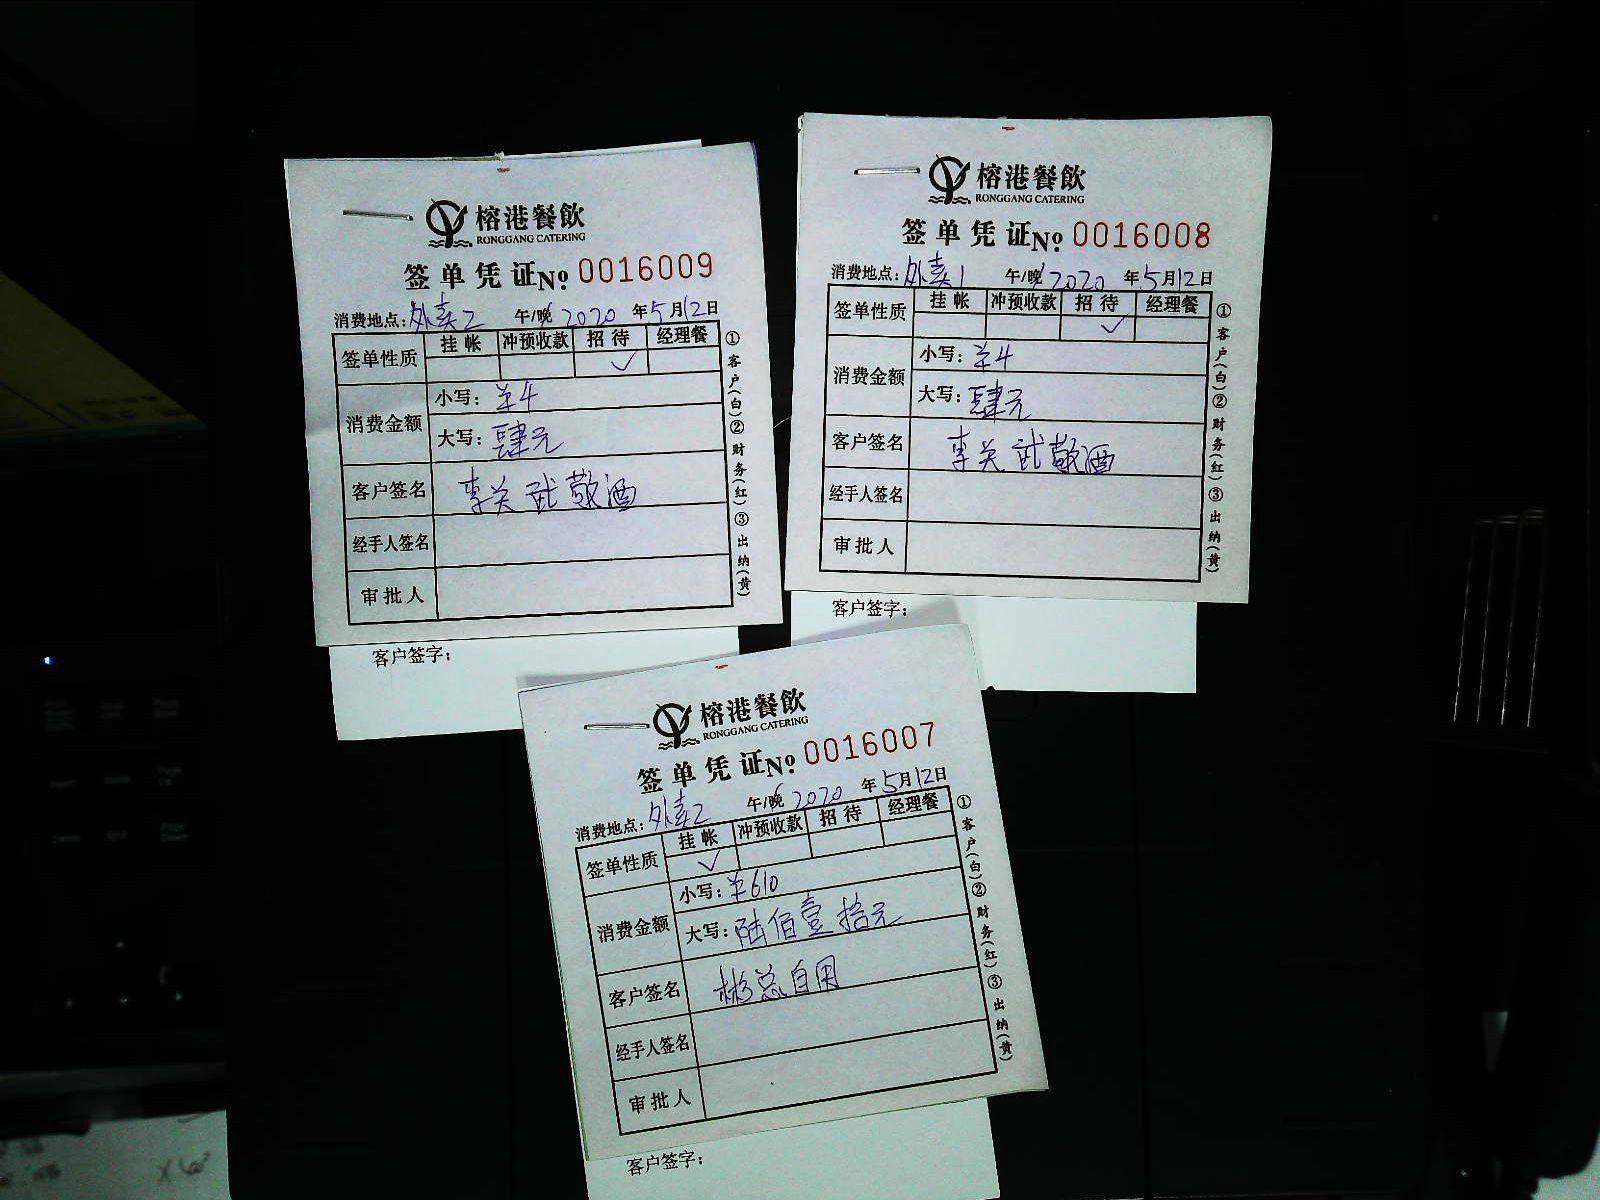 榕港餐飲
RONGGANG CATERING
签单凭证№ 0016009
消费地点:外卖2 午/晚 2020年5月12日
签单性质 挂帐 冲预收款 招待 经理餐
✓
消费金额 小写:¥4
大写:肆元
客户签名 李关武敬酒
经手人签名
审批人
①客户(白)②财务(红)③出纳(黄)
客户签字:
榕港餐飲
RONGGANG CATERING
签单凭证№ 0016008
消费地点:外卖1 午/晚 2020年5月12日
签单性质 挂帐 冲预收款 招待 经理餐
✓
消费金额 小写:¥4
大写:肆元
客户签名 李关武敬酒
经手人签名
审批人
①客户(白)②财务(红)③出纳(黄)
客户签字:
榕港餐飲
RONGGANG CATERING
签单凭证№ 0016007
消费地点:外卖2 午/晚 2020年5月12日
签单性质 挂帐 冲预收款 招待 经理餐
✓
消费金额 小写:¥610
大写:陆佰壹拾元
客户签名 彬总自用
经手人签名
审批人
①客户(白)②财务(红)③出纳(黄)
客户签字: